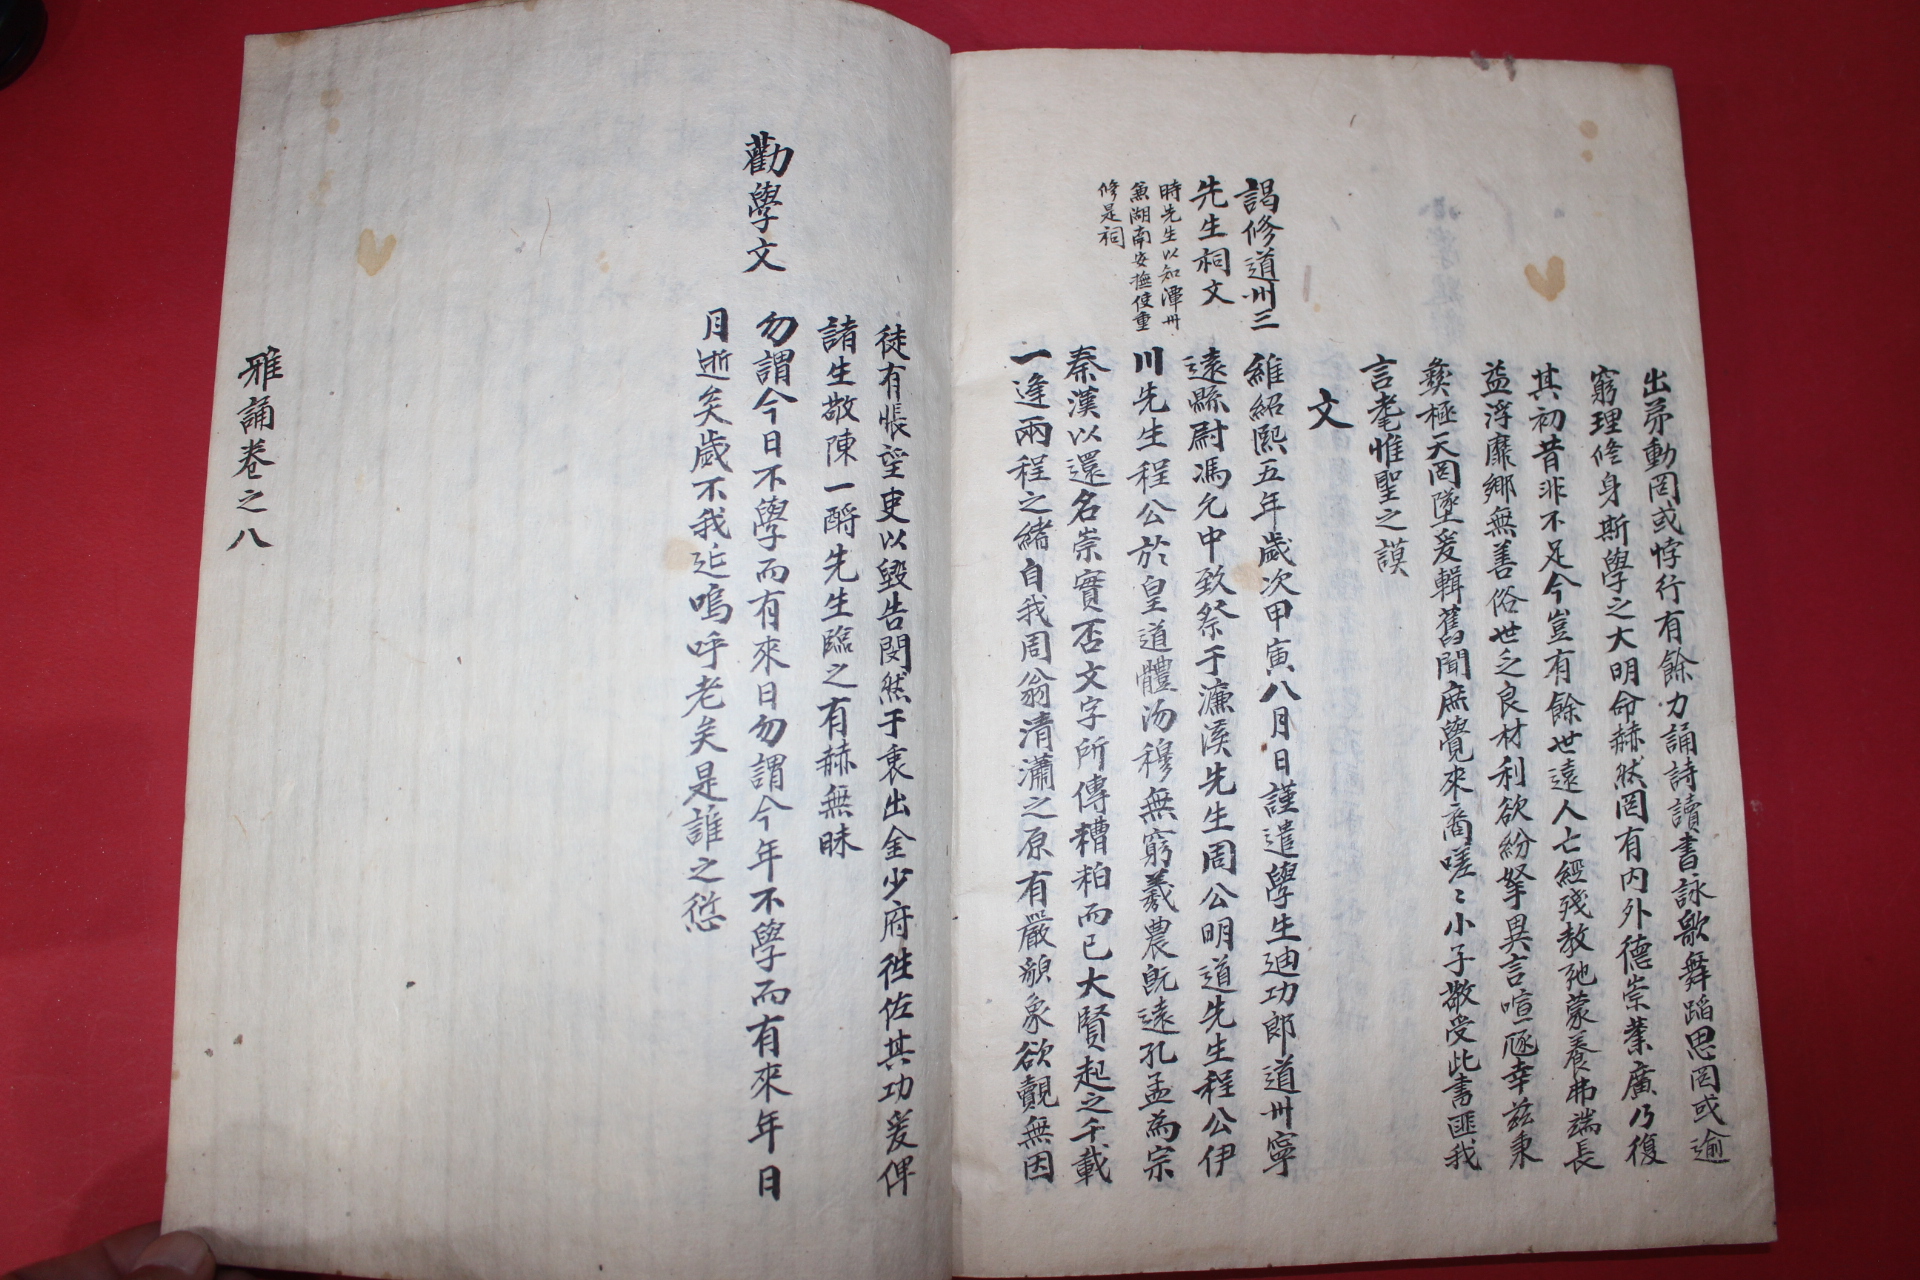 出弟動罔或悖行有餘力誦詩讀書詠歌舞蹈思罔或逾
窮理修身斯學之大明命赫然罔有內外德崇業廣乃復
其初昔非不足今豈有餘世遠人亡經殘敎弛蒙養弗端長
益浮靡鄉無善俗世乏良材利欲紛拏異言喧豗幸玆秉
彜極天罔墜爰輯舊聞庶覺來裔嗟〻小子敬受此書匪我
言耄惟聖之謨
文
謁修道州三
先生祠文
時先生以知潭州
兼湖南安撫使重
修是祠
維紹熙五年歲次甲寅八月日謹遣學生迪功郎道州寧
遠縣尉馮允中致祭于濂溪先生周公明道先生程公伊
川先生程公於皇道體沕穆無窮羲農旣遠孔孟爲宗
秦漢以還名崇實否文字所傳糟粕而已大賢起之千載
一逢兩程之緖自我周翁淸瀟之原有嚴貌象欲覿無因
徒有悵望吏以毁告閔然于衷出金少府徃佐其功爰俾
諸生敬陳一酹先生臨之有赫無昧
勸學文
勿謂今日不學而有來日勿謂今年不學而有來年日
月逝矣歲不我延嗚呼老矣是誰之愆
雅誦卷之八